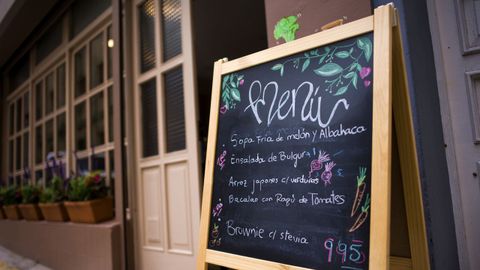 Menú
Sopa Fría de melón y Albahaca
Ensalada de Bulgur
Arroz japones c/verduras
Bacalao con Ragú de Tomates
Brownie c/ stevia
995